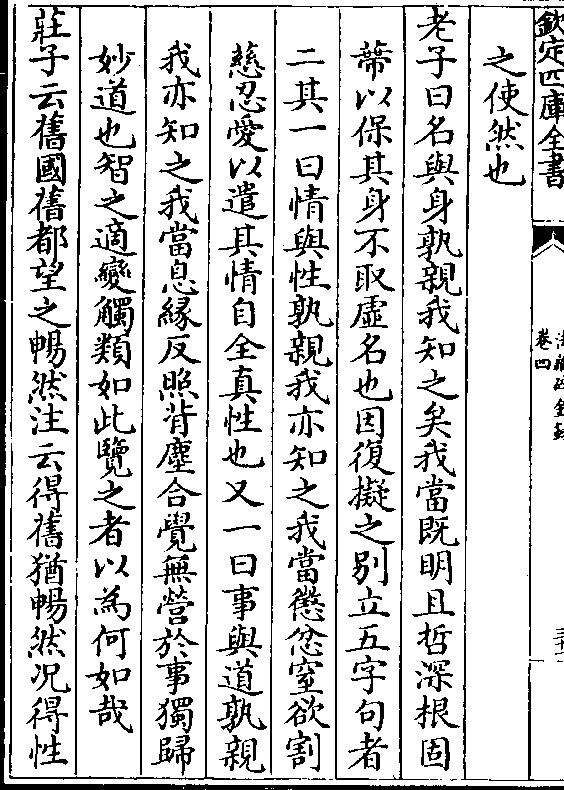 欽定四庫全書
卷四
之使然也
老子曰名與身孰親我知之矣我當既明且哲深根固
蔕以保其身不取虛名也因復擬之别立五字句者
二其一曰情與性孰親我亦知之我當懲忿窒欲割
慈忍愛以遣其情自全真性也又一曰事與道孰親
我亦知之我當息緣反照背塵合覺無營於事獨歸
妙道也智之適變觸類如此覽之者以為何如哉
莊子云舊國舊都望之暢然注云得舊猶暢然况得性